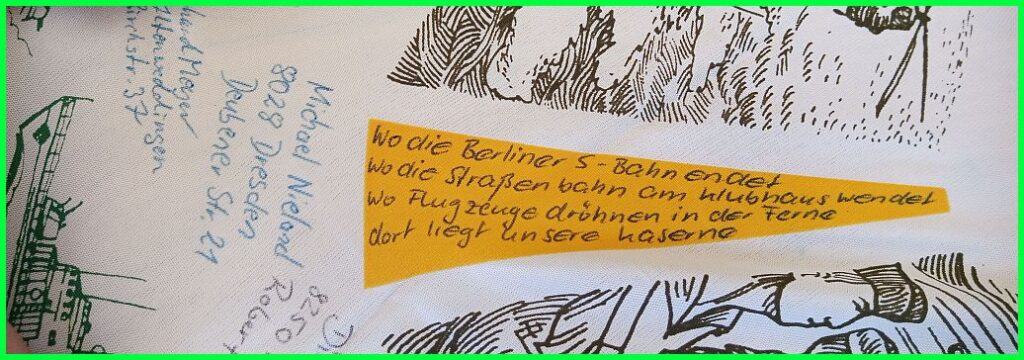 Wo die Berliner S-Bahn endet
Wo die Straßenbahn am Klubhaus wendet
Wo Flugzeuge dröhnen in der Ferne
dort liegt unsere Kaserne
Michael Nieland
8028 Dresden
Deubener Str. 21
Mayer
Altenweddingen
str. 37
8250
Robert